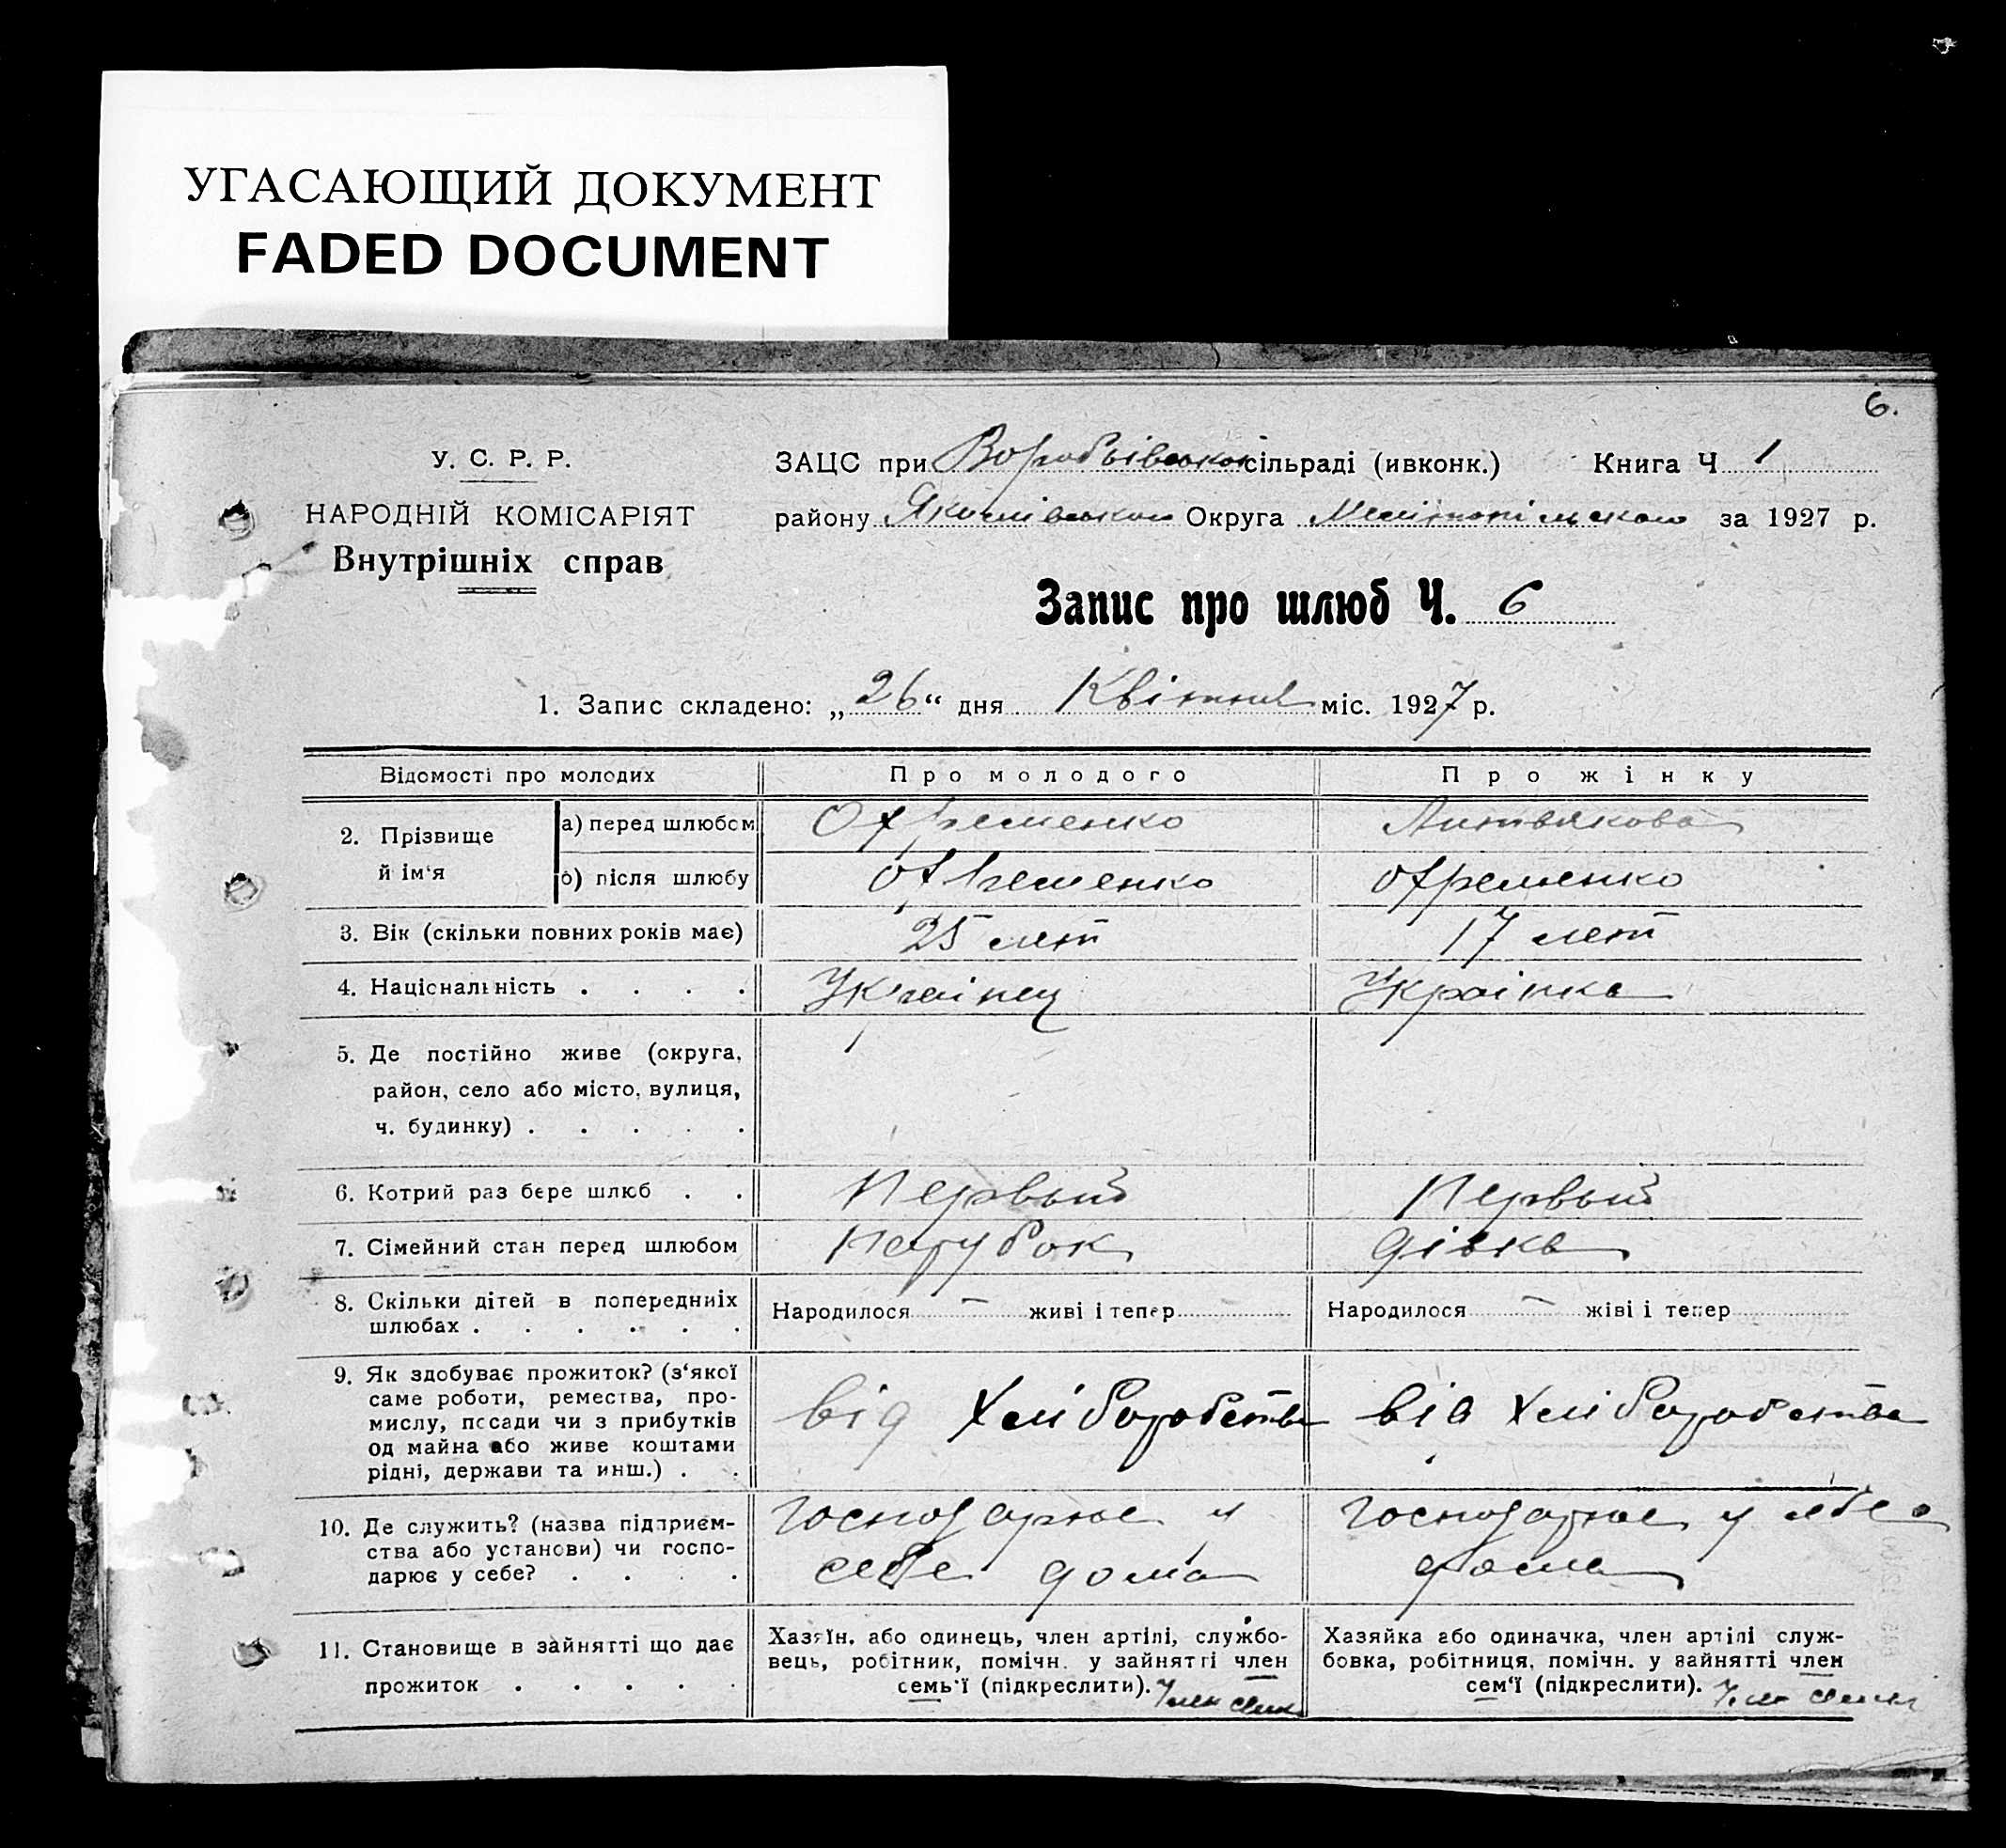 УГАСАЮЩИЙ ДОКУМЕНТ
FADED DOCUMENT
6.
У. С. Р. Р.
НАРОДНІЙ КОМІСАРІЯТ
Внутрішніх справ
ЗАЦС при Воробьівської сільраді (ивконк.) Книга Ч 1
району Якимівського Округа Мелітопільського за 1927 р.
Запис про шлюб Ч. 6
1. Запис складено: „26“ дня Квітня міс. 1927 р.
Відомості про молодих
Про молодого
Про жінку
2. Прізвище й ім‘я
а) перед шлюбом
Охременко
Литвякова
б) після шлюбу
Охременко
Охременко
3. Вік (скільки повних років має)
25 лет
17 лет
4. Національність . . . .
Украінец
Украінка
5. Де постійно живе (округа,
район, село або місто, вулиця,
ч. будинку) . . . . .
6. Котрий раз бере шлюб . .
Первый
Первый
7. Сімейний стан перед шлюбом
Парубок
Дівка
8. Скільки дітей в попередниіх
шлюбах . . . . . .
Народилося – живі і тепер
Народилося – жіві і тепер
9. Як здобуває прожиток? (з‘якої
саме роботи, ремества, про-
мислу, посади чи з прибутків
од майна або живе коштами
рідні, держави та инш.) . .
від Хліборобства
від Хліборобства
10. Де служить? (назва підприєм-
ства або установи) чи госпо-
дарює у себе? . . . .
господарює у
себе дома
господарює у себе
дома
11. Становище в зайнятті що дає
прожиток . . . . .
Хазяїн, або одинець, член артілі, службо-
вець, робітник, помічн. у зайнятті член
семь‘ї (підкреслити). Член сімї
Хазяйка або одиначка, член артілі служ-
бовка, робітниця, помічн. у зайнятті член
сем‘ї (підкреслити). Член сімї